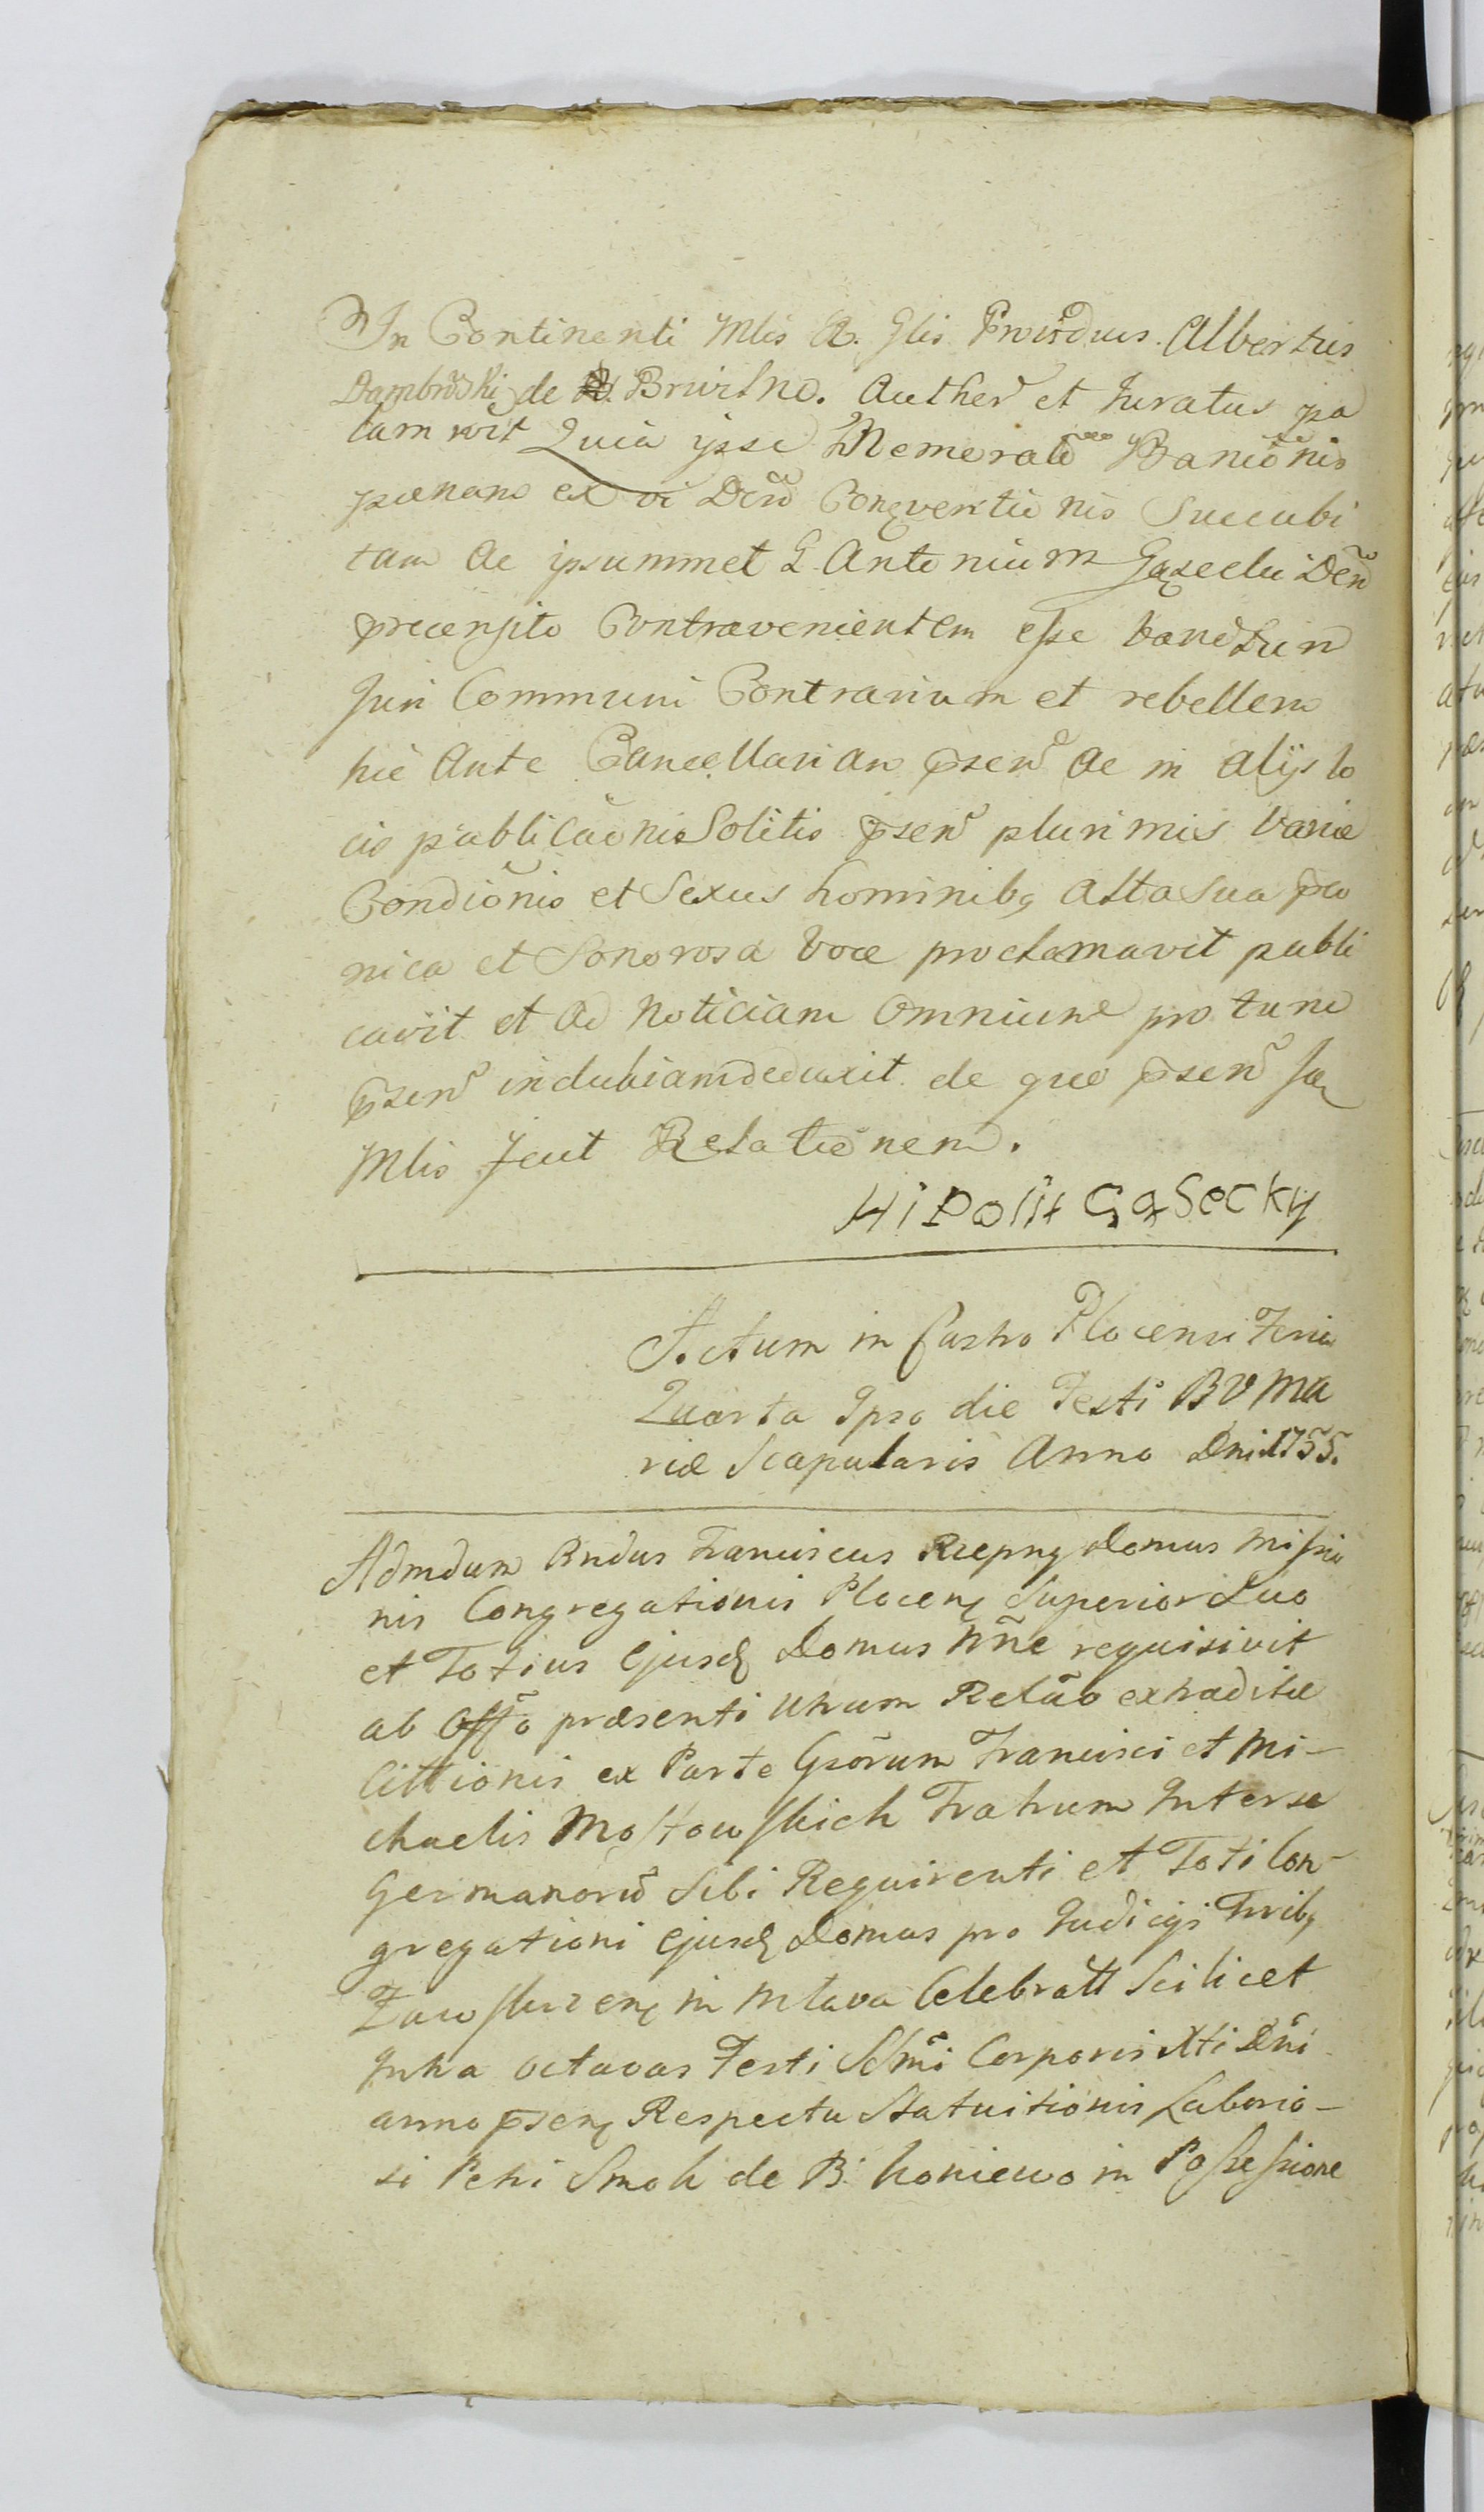 In Continenti Mlis R. Glis Providus Albertus
Dambrōski de Brwilno. Auther̃ et Juratus pa
lam rōit Quia ipse Memorate Banīonis
pœnam ex vi Dēn Conqventionis Succubi
tam Ac ipsummet G Antonium Gąsecki Dēn
precensito Contravenientem esse banitum
Juri Communi Contrarium et rebellem
hic Ante Cancellariam p̄sen Ac in alijs lo
cis publicaōnis Solitis p̄sen plurimis variæ
Condiōnis et Sexus hominibq alta sua pro
nica et Sonorosa voce proclamavit publi
cavit et Ad Noticiam Omnium pro tunc
p̄sen indubiam deduxit de quo p̄sen suą
Mlis fecit Relationem.
Hipolit Gąsecky
Actum in Castro Plocensi Feria
Quarta Ipso die Festi BV Ma
riæ Scapularis Anno Dni 1755.
Admdum Rndus Franciscus Rzepny Domus Missio
nis Congregationis Plocen Superior Suo
et Totius Ejusd Domus Nñe requisivit
ab Offō præsenti Utrum Relāo extraditæ
Cittionis ex Parte Gsōrum Francisci et Mi-
chaelis Mostowskich Fratrum Inter se
Germanorū Sibi Requirenti et Toti Con-
gregationi Ejusd Domus pro Judicijs Tribq
Zawskrzen in Mlava Celebratt Scilicet
Intra octavas Festi SSm̄i Corporis Xti Dn̄i
anno p̄sen Respectu Statuitionis Laborio-
si Petri Smok de B: koniewo in Possessione